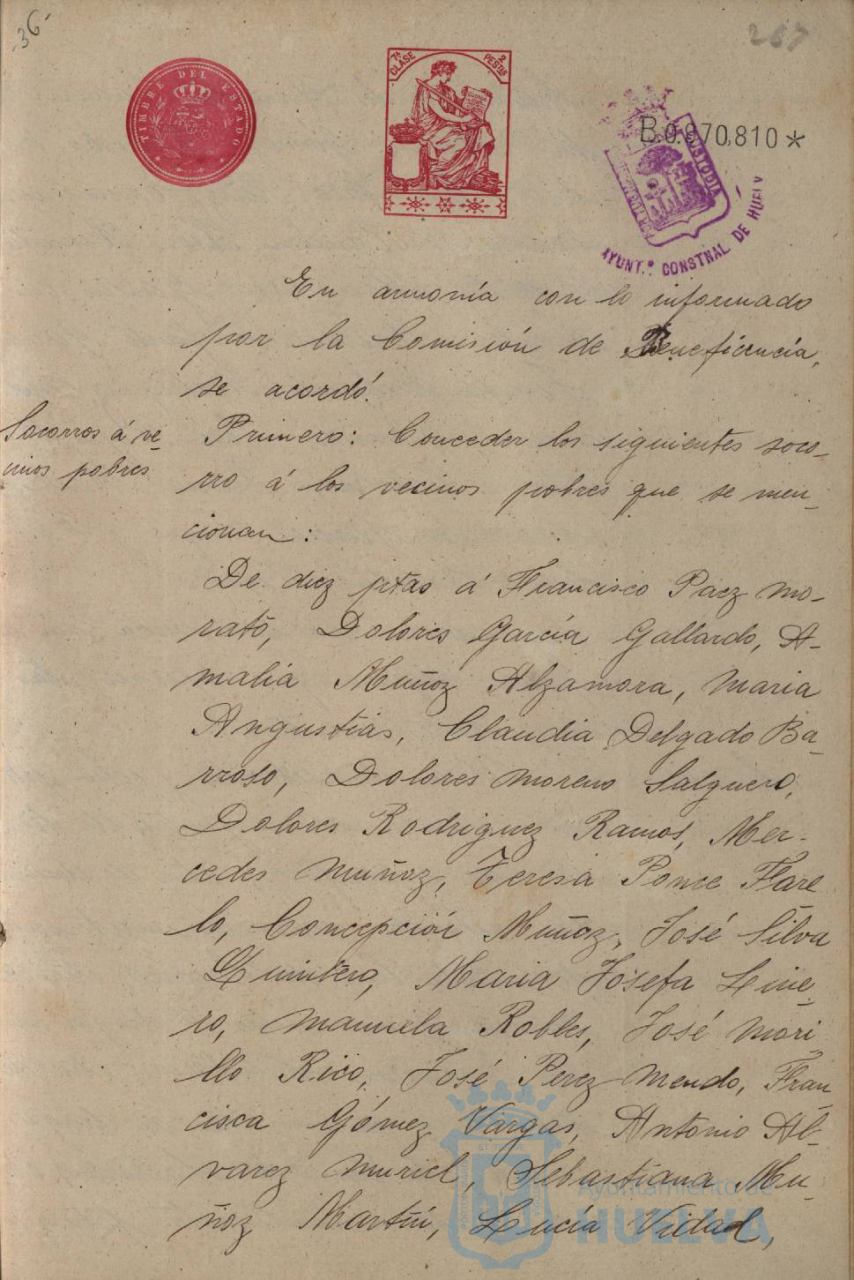 36
267
TIMBRE DEL ESTADO
7ª CLASE
2 PESTAS
B.0.970,810*
CUSTODIA
AYUNT.º CONSTNAL DE HUELV
En armonía con lo informado
por la Comisión de Beneficencia,
se acordó.
Socorros á ve-
cinos pobres
Primero: Conceder los siguientes soco-
rro á los vecinos pobres que se men-
cionan:
De diez ptas á Francisco Paez Mo-
rató, Dolores García Gallardo, A-
malia Muñoz Alzamora, Maria
Angustias, Claudia Delgado Ba-
rroso, Dolores Moreno Salguero,
Dolores Rodriguez Ramos, Mer-
cedes Muñoz, Teresa Ponce Fare
lo, Concepción Muñoz, José Silva
Quintero, Maria Josefa Line-
ro, Manuela Robles, José Mori-
llo Rico, José Perez Mendo, Fran-
cisca Gómez Vargas, Antonio Al-
varez Muriel, Sebastiana Mu-
ñoz Martín, Lucía Vidal,
Ayuntamiento de
HUELVA